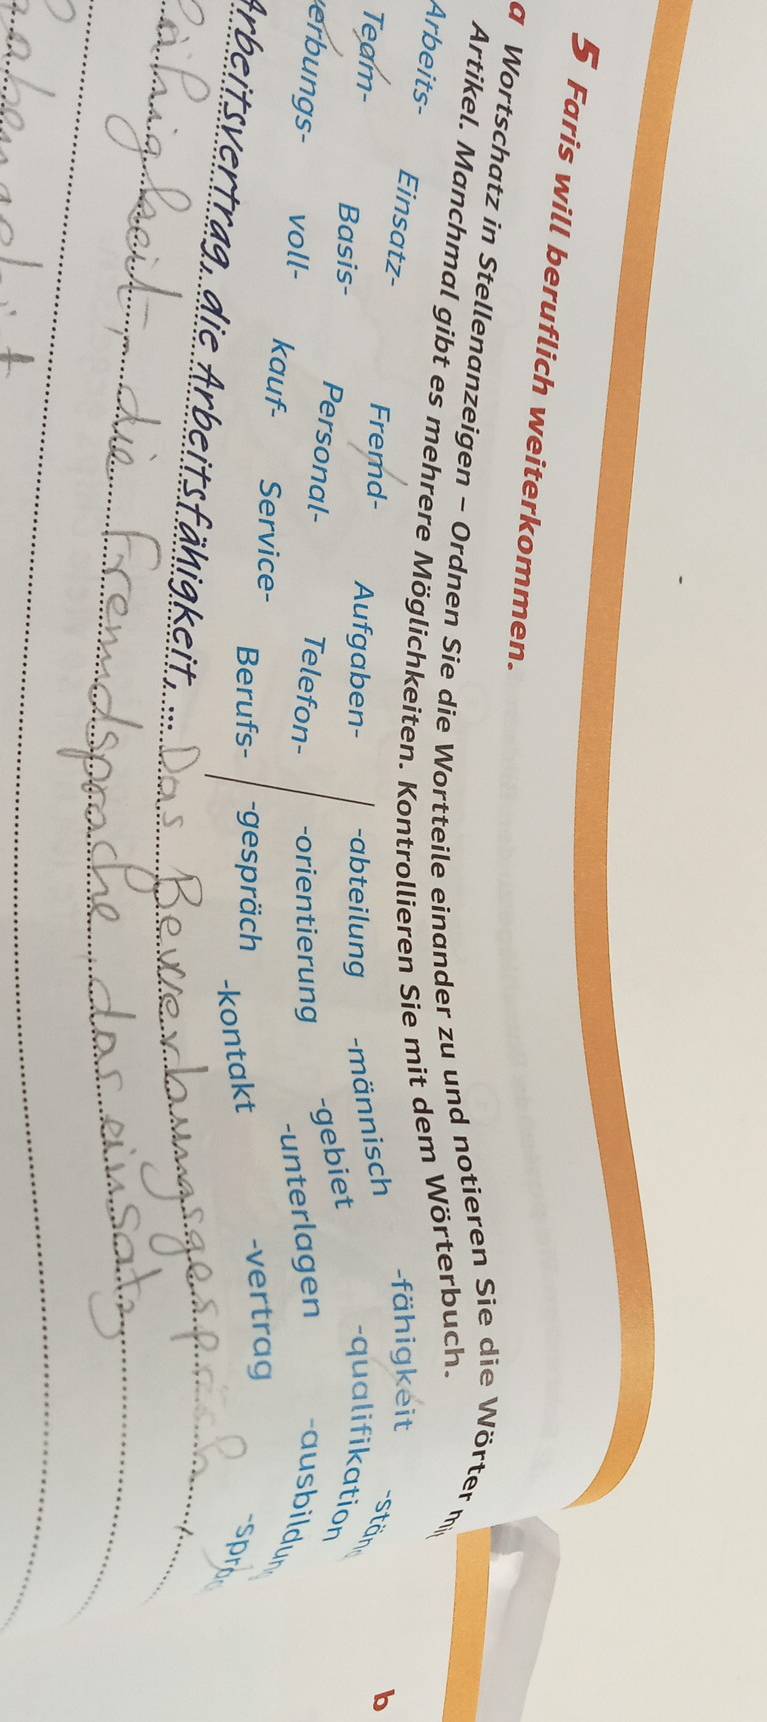 5 Faris will beruflich weiterkommen.
a Wortschatz in Stellenanzeigen – Ordnen Sie die Wortteile einander zu und notieren Sie die Wörter
Artikel. Manchmal gibt es mehrere Möglichkeiten. Kontrollieren Sie mit dem Wörterbuch.
Arbeits- Einsatz- Fremd- Aufgaben- -abteilung -männisch -fähigkeit
Team- Basis- Personal- Telefon- -orientierung -gebiet -qualifikation
erbungs- voll- kauf- Service- Berufs- -gespräch -unterlagen -ausbildun
-kontakt -vertrag
Arbeitsvertrag, die Arbeitsfähigkeit, ... Das Bewerbungsgespräch,
die Fremdsprache, das einsatz
b